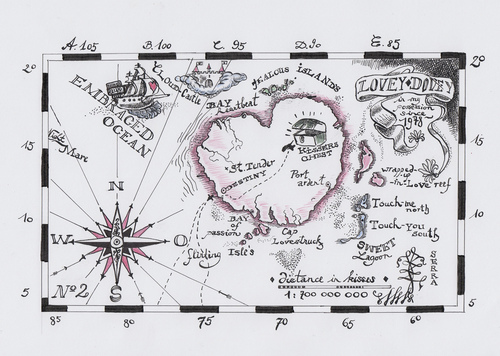 A. 105 B. 100 C. 95 D. 90 E. 85
20 20
LOVEY DOVEY
in my
possession
since
1978
EMBRACED
OCEAN
Cloud Castle
JEALOUS ISLANDS
BAY Heartbeat
Kissers
CHEST
St. Tender
DESTINY
Port
ardent
15 15
Mare
wrapped-
-up-
-in-Love reef
Touch me
north
Touch-you
South
SWEET
Lagoon
BAY
of
passion
Isle's
Cap
Lovestruck
10 10
N
W O
S
Nº2
SERRA
Distance in kisses
1:700 000 000
5 5
85 80 75 70 65 60